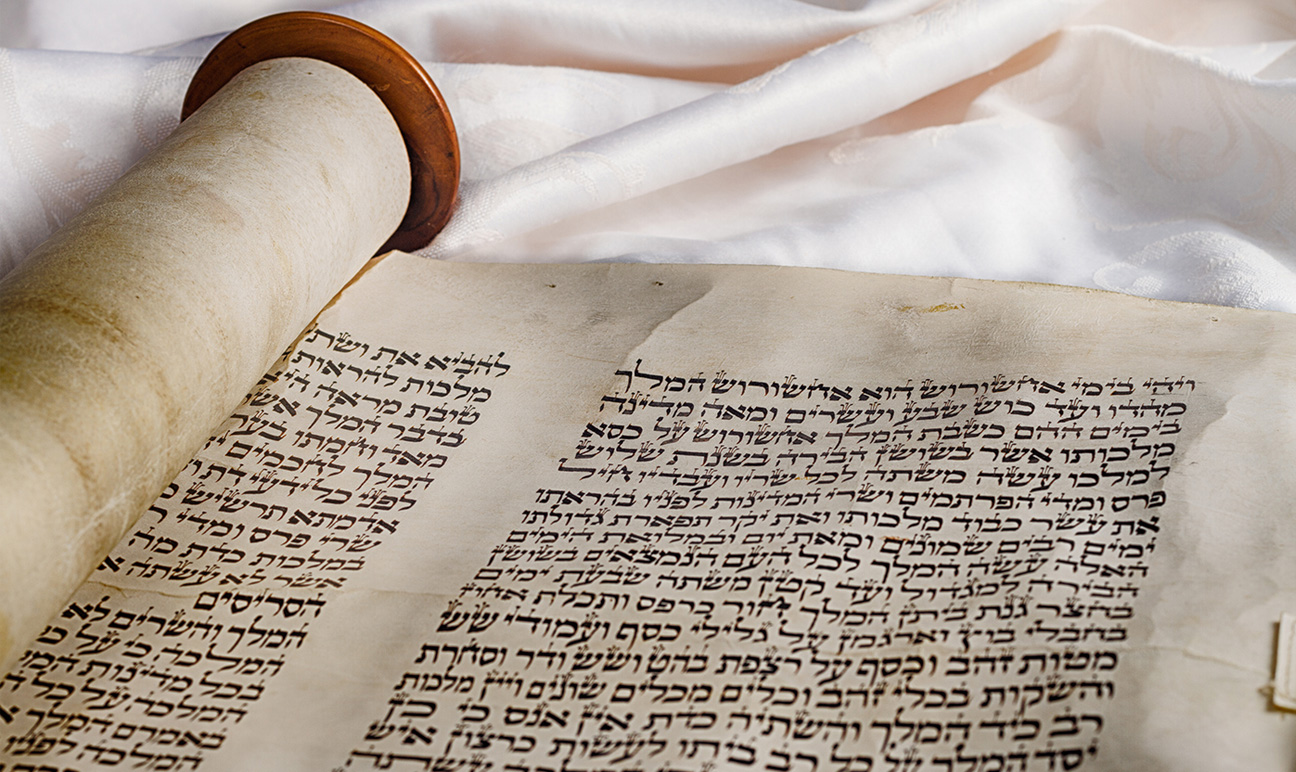 ויהי בימי אחשורוש הוא אחשורוש המלך
מהדו ועד כוש שבע ועשרים ומאה מדינה
בימים ההם כשבת המלך אחשורוש על כסא
מלכותו אשר בשושן הבירה בשנת שלוש
למלכו עשה משתה לכל שריו ועבדיו חיל
פרס ומדי הפרתמים ושרי המדינות לפניו בהראתו
את עשר כבוד מלכותו ואת יקר תפארת גדולתו
ימים רבים שמונים ומאת יום ובמלואת הימים
האלה עשה המלך לכל העם הנמצאים בשושן
הבירה למגדול ועד קטן משתה שבעת ימים
בחצר גנת ביתן המלך חור כרפס ותכלת אחוז
בחבלי בוץ וארגמן על גלילי כסף ועמודי שש
מטות זהב וכסף על רצפת בהט ושש ודר וסחרת
והשקות בכלי זהב וכלים מכלים שונים ויין מלכות
רב כיד המלך והשתיה כדת אין אנס כי כן
יסד המלך על כל רב ביתו לעשות כרצון איש
עשתה
להביא את ושת
מלכות להראות
טובת מראה
בדבר המלך אש
מאד וחמתו בער
המלך לחכמים
לפני כל ידעי דת
אדמתא תרשיש
שרי פרס ומדי
במלכות כדת מה
אשר לא עשתה א
הסריסים
המלך והשרים לא
המלכה כי על כ
בכל מדינות המ
המלכה על כל ה
באמרם המלך
המלכה לפניו